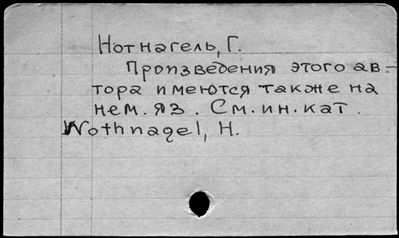 Нотнагель, Г.
Произведения этого ав-
тора имеются также на
нем. яз. См. ин. кат.
Nothnagel, H.